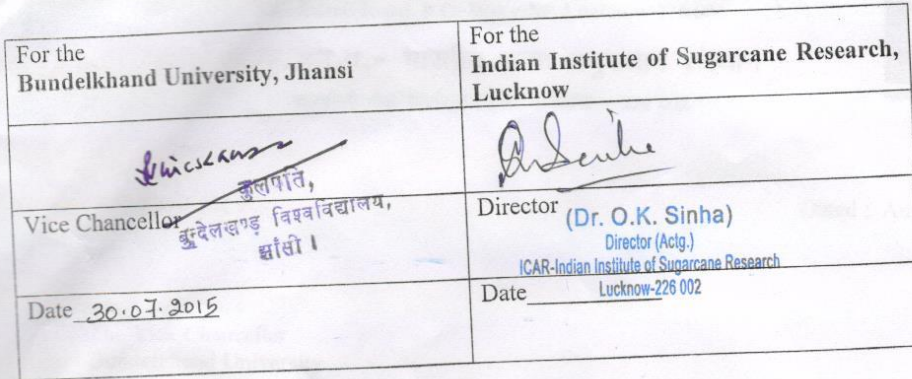 For the
Bundelkhand University, Jhansi
For the
Indian Institute of Sugarcane Research,
Lucknow
Vice Chancellor
कुलपति,
बुन्देलखण्ड विश्वविद्यालय,
झाँसी ।
Director
(Dr. O.K. Sinha)
Director (Actg.)
ICAR-Indian Institute of Sugarcane Research
Lucknow-226 002
Date 30.07.2015
Date